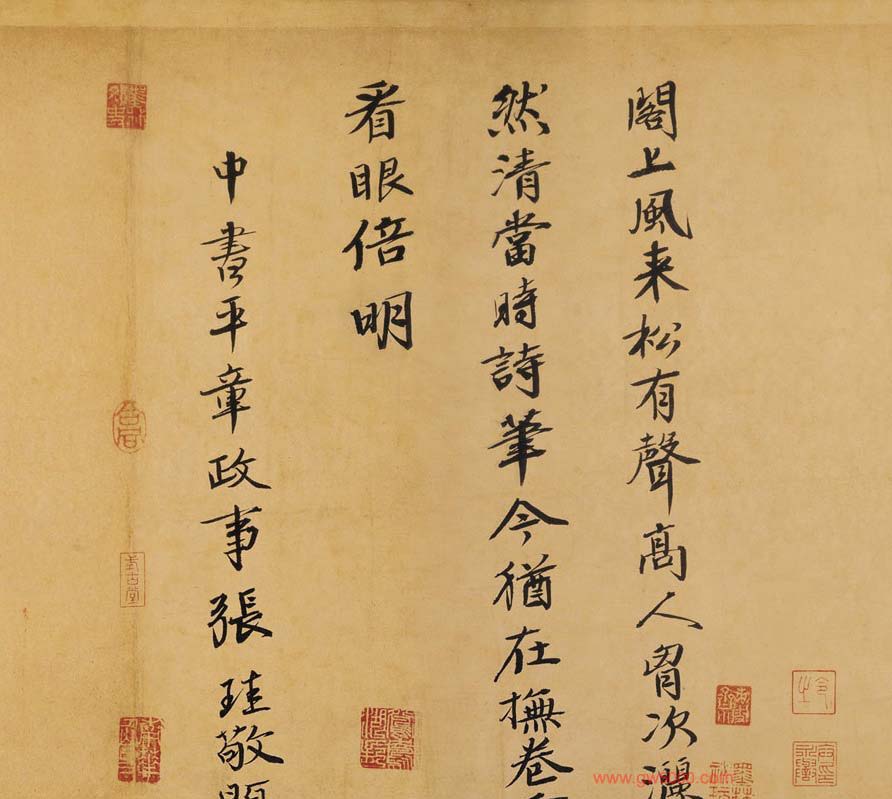 閣上風来松有聲高人胷次灑
然清當時詩筆今猶在撫卷
看眼倍明
中書平章政事張珪敬題